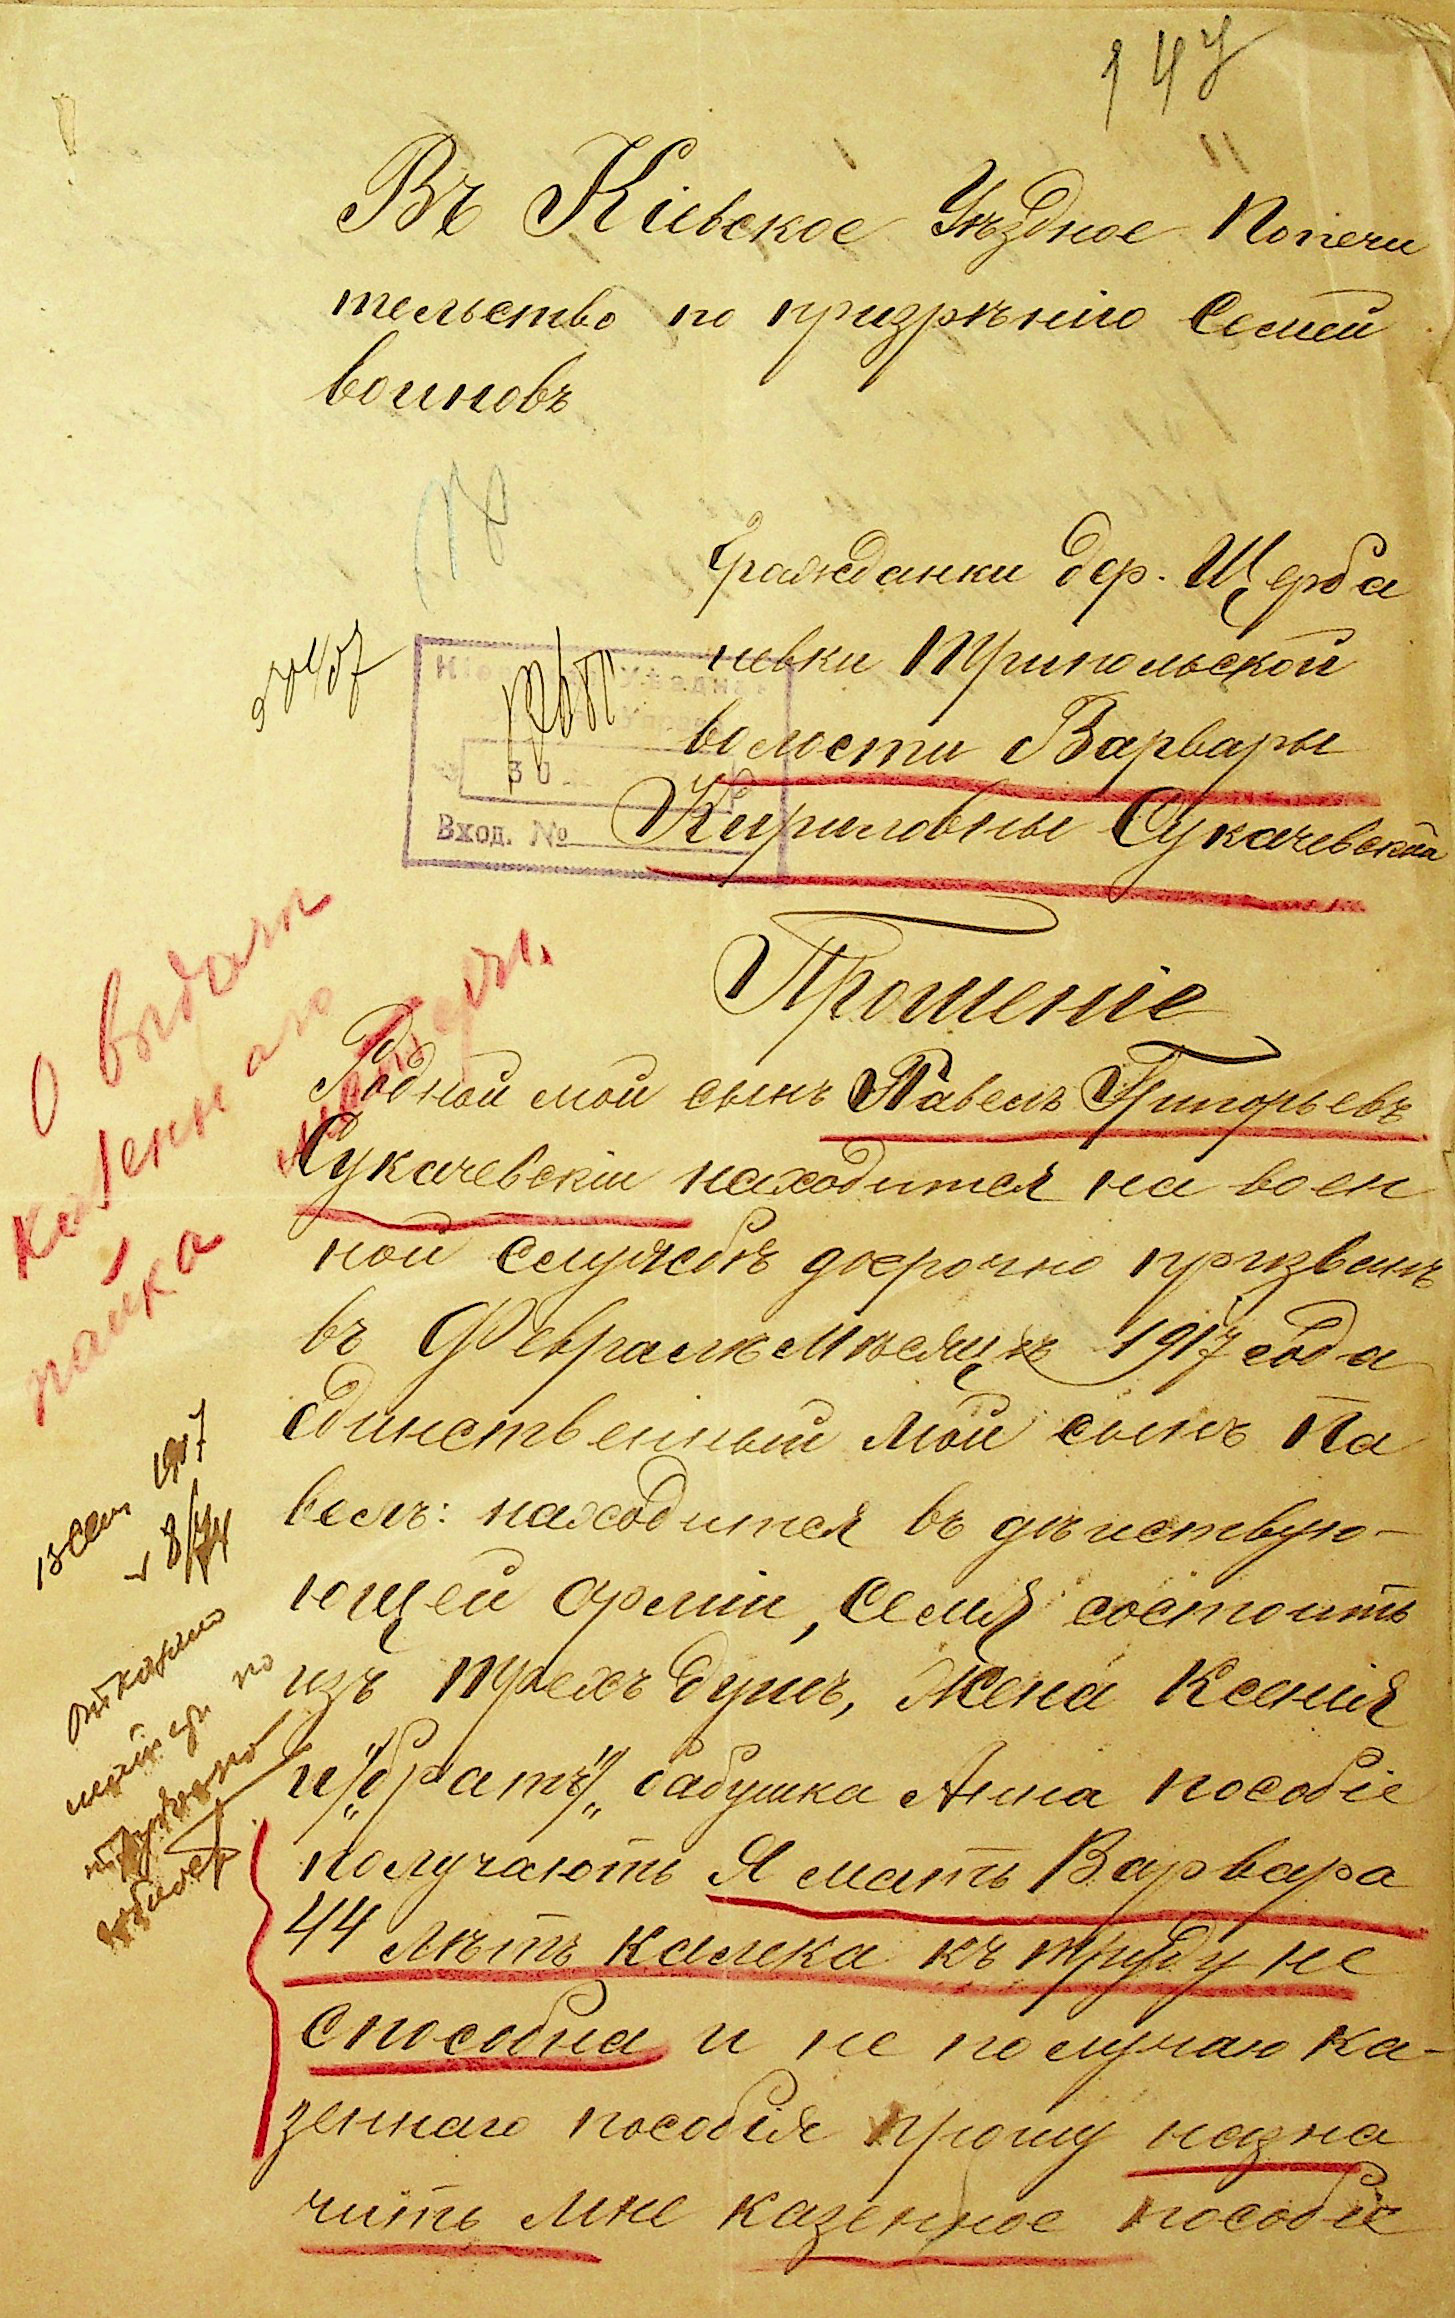 147
Въ Кіевское Уѣздное Попечи
тельство по призрѣнію Семей
воиновъ
Гражданки дер. Щерба
невки Трипольской
волости Варвары
Кириловны Сукачевской
Уѣздная
30
Вход. №
Прошеніе
О выдачи
казеннаго
пайка
Родной мой сынъ Павелъ Григорьевъ
Сукачевскій находится на воен
ной службѣ досрочно призванъ
въ Февралѣ мѣсяцѣ 1917 года
единственный мой сынъ Па
велъ: находится въ дѣиствую-
ющей арміи, Семья состоитъ
изъ трехъ душъ, жена Ксенія
и „братъ„ бабушка Анна пособіе
получаютъ Я мать Варвара
44 лѣтъ калека къ труду не
способна и не получаю ка-
зеннаго пособія прошу назна
чить мне казенное пособіе
13 сен. 1917